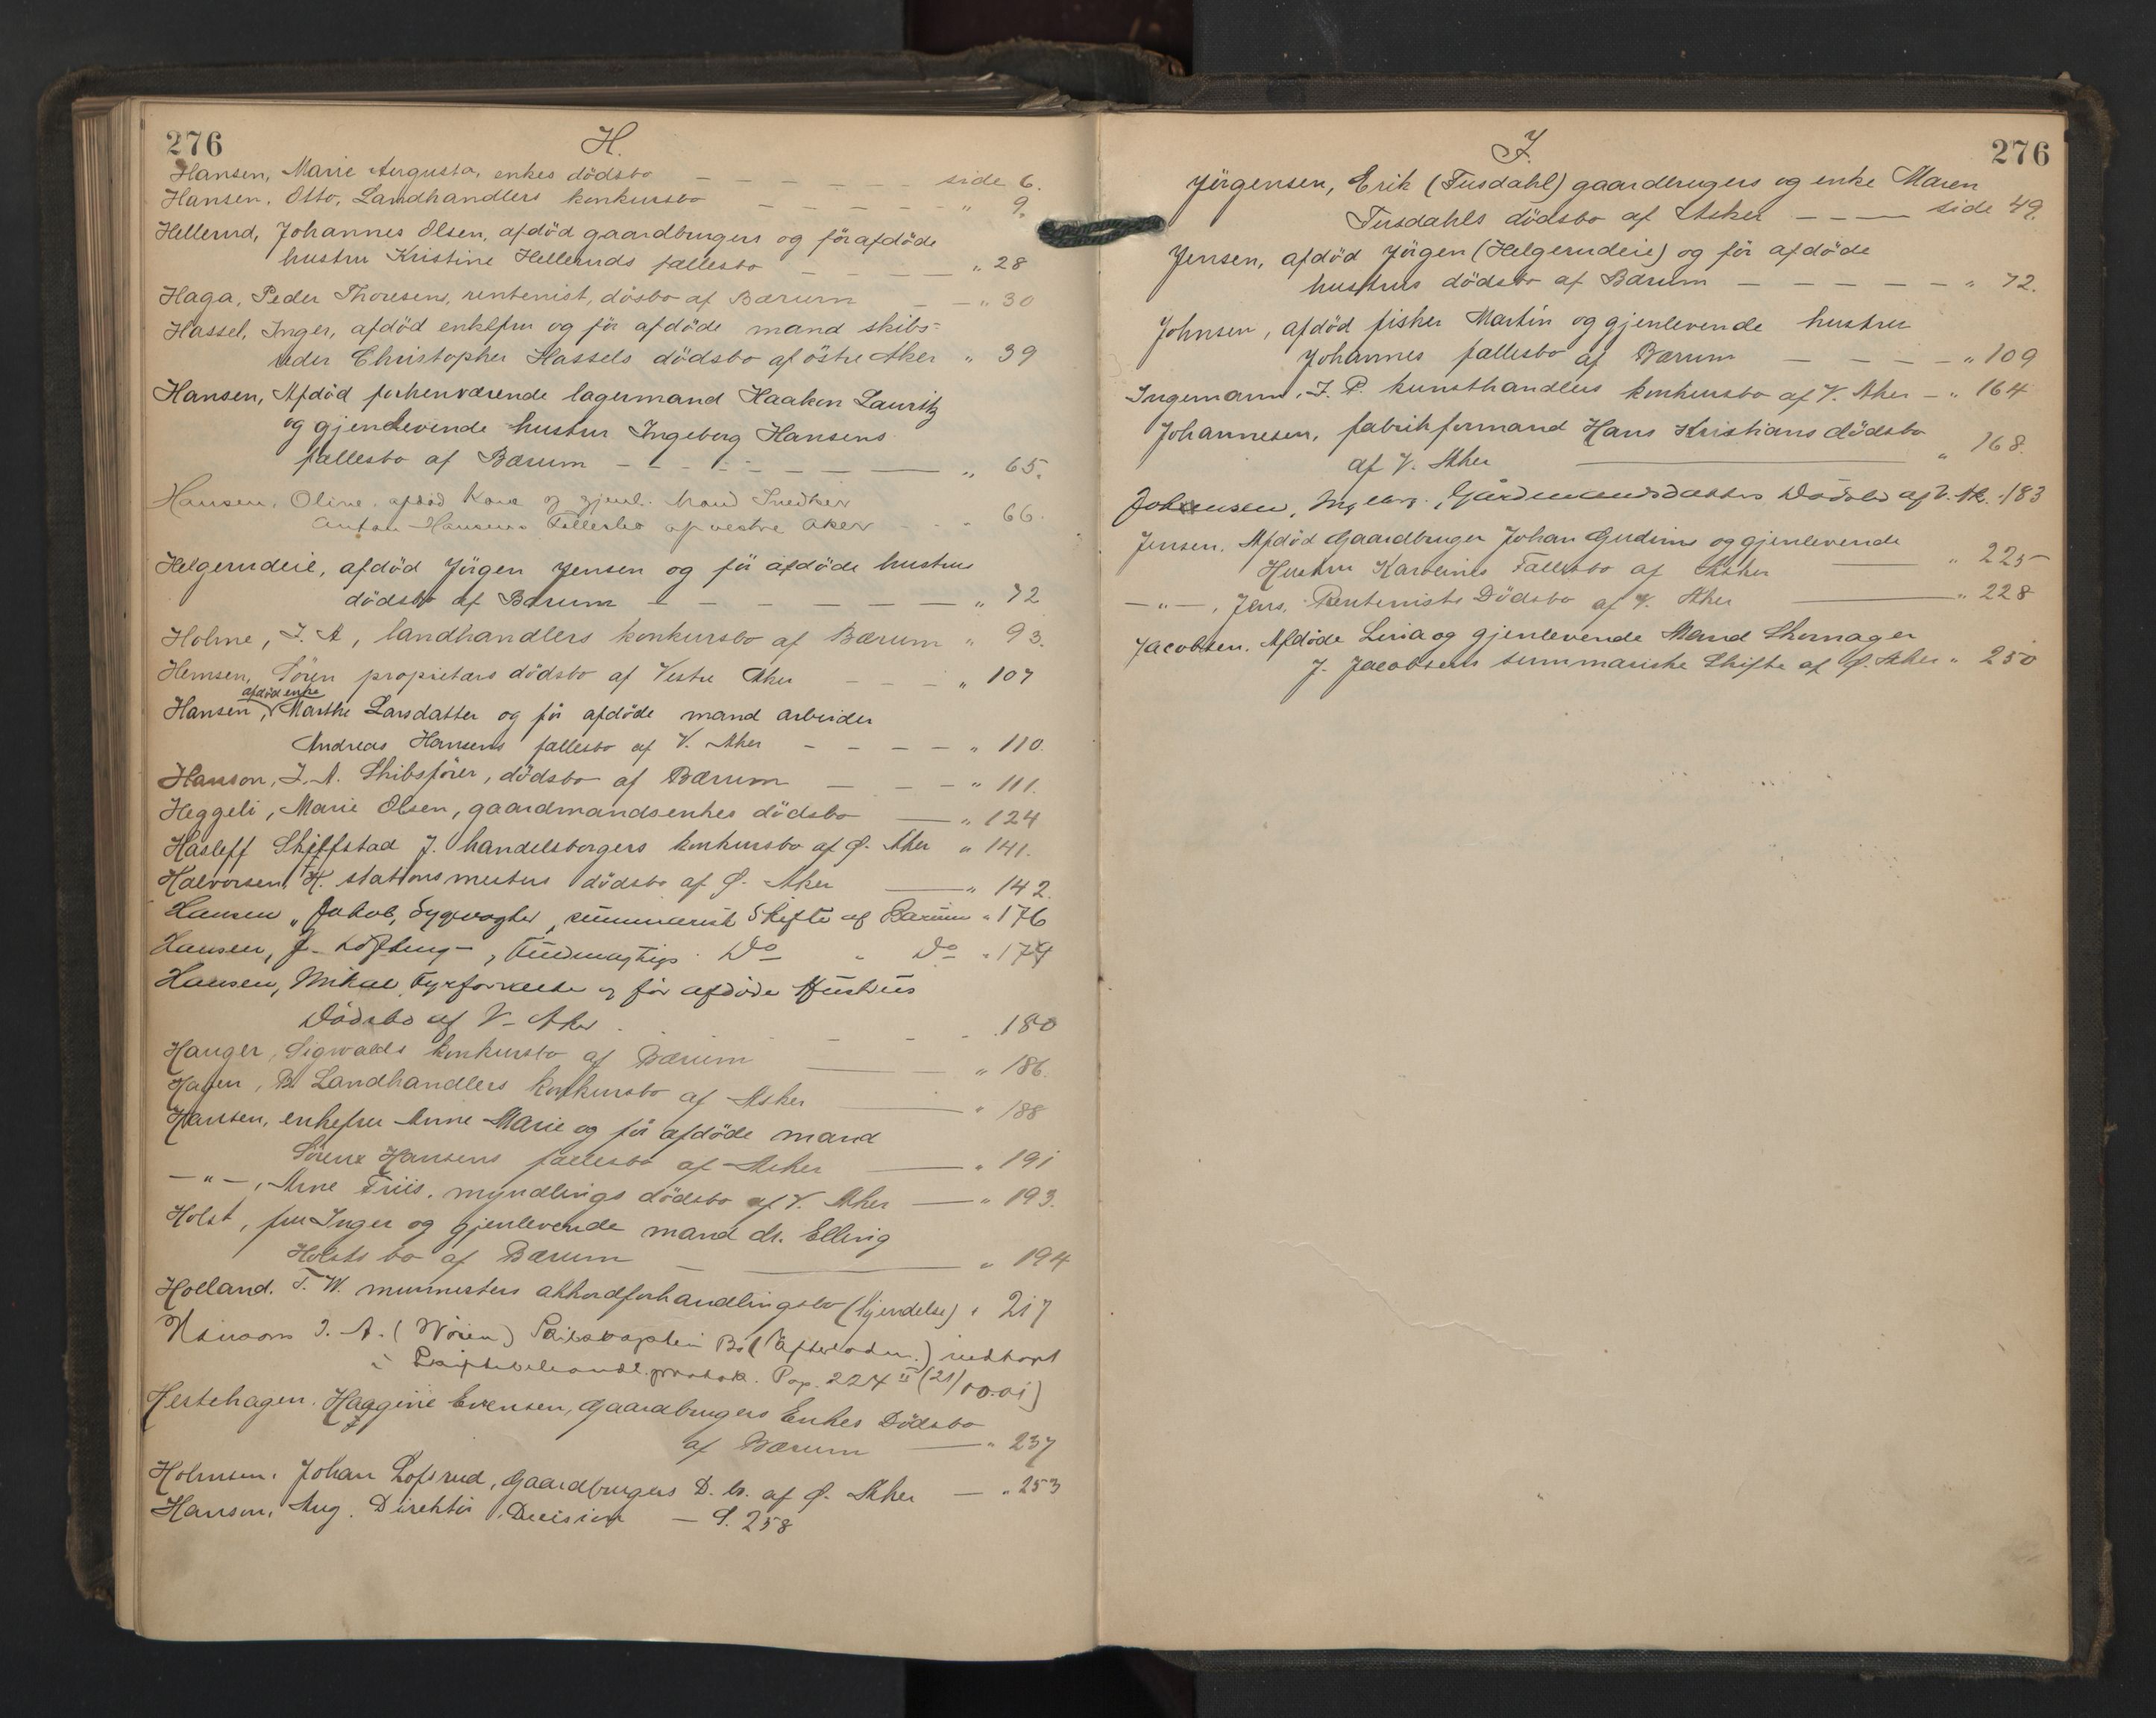 276
H.
Hansen, Marie Augusta, enkes dödsbo — — — — — — side 6.
Hansen, Otto, Landhandlers konkursbo — — — — — „ 9.
Hellerud, Johannes Olsen, afdöd gaardbrugers og förafdöde
hustru Kristine Helleruds fællesbo — — — — „ 28
Haga, Peder Thoresens, rentenist, dösbo af Bærum — — „ 30
Hassel, Inger, afdöd enkefru og för afdöde mand skibs=
reder Christopher Hassels dödsbo af östre Aker „ 39
Hansen, Afdöd forhenværende lagermand Haakon Lauritz
og gjenlevende hustru Ingeborg Hansens
fællesbo af Bærum — — — — — — „ 65.
Hansen, Oline, afdöd Kone og gjenl. Mand Snedker
Anton Hansens Fællesbo af vestre Aker - - - 66.
Helgerudeie, afdöd Jörgen Jensen og för afdöde hustrus
dödsbo af Bærum — — — — — — „ 72
Holme, J. A, landhandlers konkursbo af Bærum „ 93.
Hemsen, Sören proprietærs dödsbo af Vestre Aker — — — „ 107
afdöd enke
Hansen, Marthe Larsdatter og för afdöde mand arbeider
Andreas Hansens fællesbo af V. Aker — — — — „ 110.
Hanson, J. A. Skibsförer, dödsbo af Bærum — — — „ 111.
Heggeli, Marie Olsen, gaardmandsenkes dödsbo — „ 124
Hasleff Skiffstad J. handelsborgers konkursbo af Ø. Aker „ 141.
Halvorsen, H. stationsmesters dödsbo af Ø. Aker — „ 142.
Hansen, Jakob, Sygevogter, summarisk Skifte af Bærum „ 176
Hansen, J. Do „ Do „ 179
Hansen, Mikal Fyrforvalter og för afdöde Hustrus
Dödsbo af V. Aker - - - 180
Hauger, Sigwalds konkursbo af Bærum — — „ 186.
Hagen, B. Landhandlers konkursbo af Asker — „ 188
Hansen, enkefru Anne Marie og för afdöde mand
Sörens Hansens fællesbo af Asker — „ 191
— „ —, Arne Friis, myndlings dödsbo af V. Aker — „ 193.
Holst, fru Inger og gjenlevende mand dr. Elling
Holsts bo af Bærum — — „ 194
Holland. T. W. murmesters akkordforhandlingsbo (kjendelse) „ 217
J. A. Bo indtagt
Pag. 224 II (21/10.01)
Hestehagen. Haagine Evensen, Gaardbrugers Enkes Dödsbo
af Bærum — „ 237
Holmsen, Johan Lofsrud, Gaardbrugers D. b. af Ø. Aker — „ 253
Hanson, Aug. Direktör, Decision — S. 258
J.
276
Jörgensen, Erik (Tusdahl) gaardbrugers og enke Maren
Tusdahls dödsbo af Asker — — — side 49.
Jensen, afdöd Jörgen (Helgerudeie) og för afdöde
hustrus dödsbo af Bærum — — — — — „ 72.
Johnsen, afdöd fisker Martin og gjenlevende hustru
Johannes fællesbo af Bærum — — — — „ 109
Ingemann, J. P. kunsthandlers konkursbo af V. Aker — „ 164
Johannesen, fabrikformand Hans Kristians dödsbo
af V. Aker — „ 168.
Johansen, Ingeborg, Gårdmandsdatters Dödsbo af V. Ak. „ 183
Jensen, Afdöd Gaardbruger Johan Gudims og gjenlevende
Hustru Karolines Fællesbo af Asker — „ 225
— „ —, Jens, Rentenists Dödsbo af V. Aker — „ 228
Jacobsen. Afdøde Lina og gjenlevende Mand Skomager
J. Jacobsens summariske Skifte af Ø. Aker „ 250